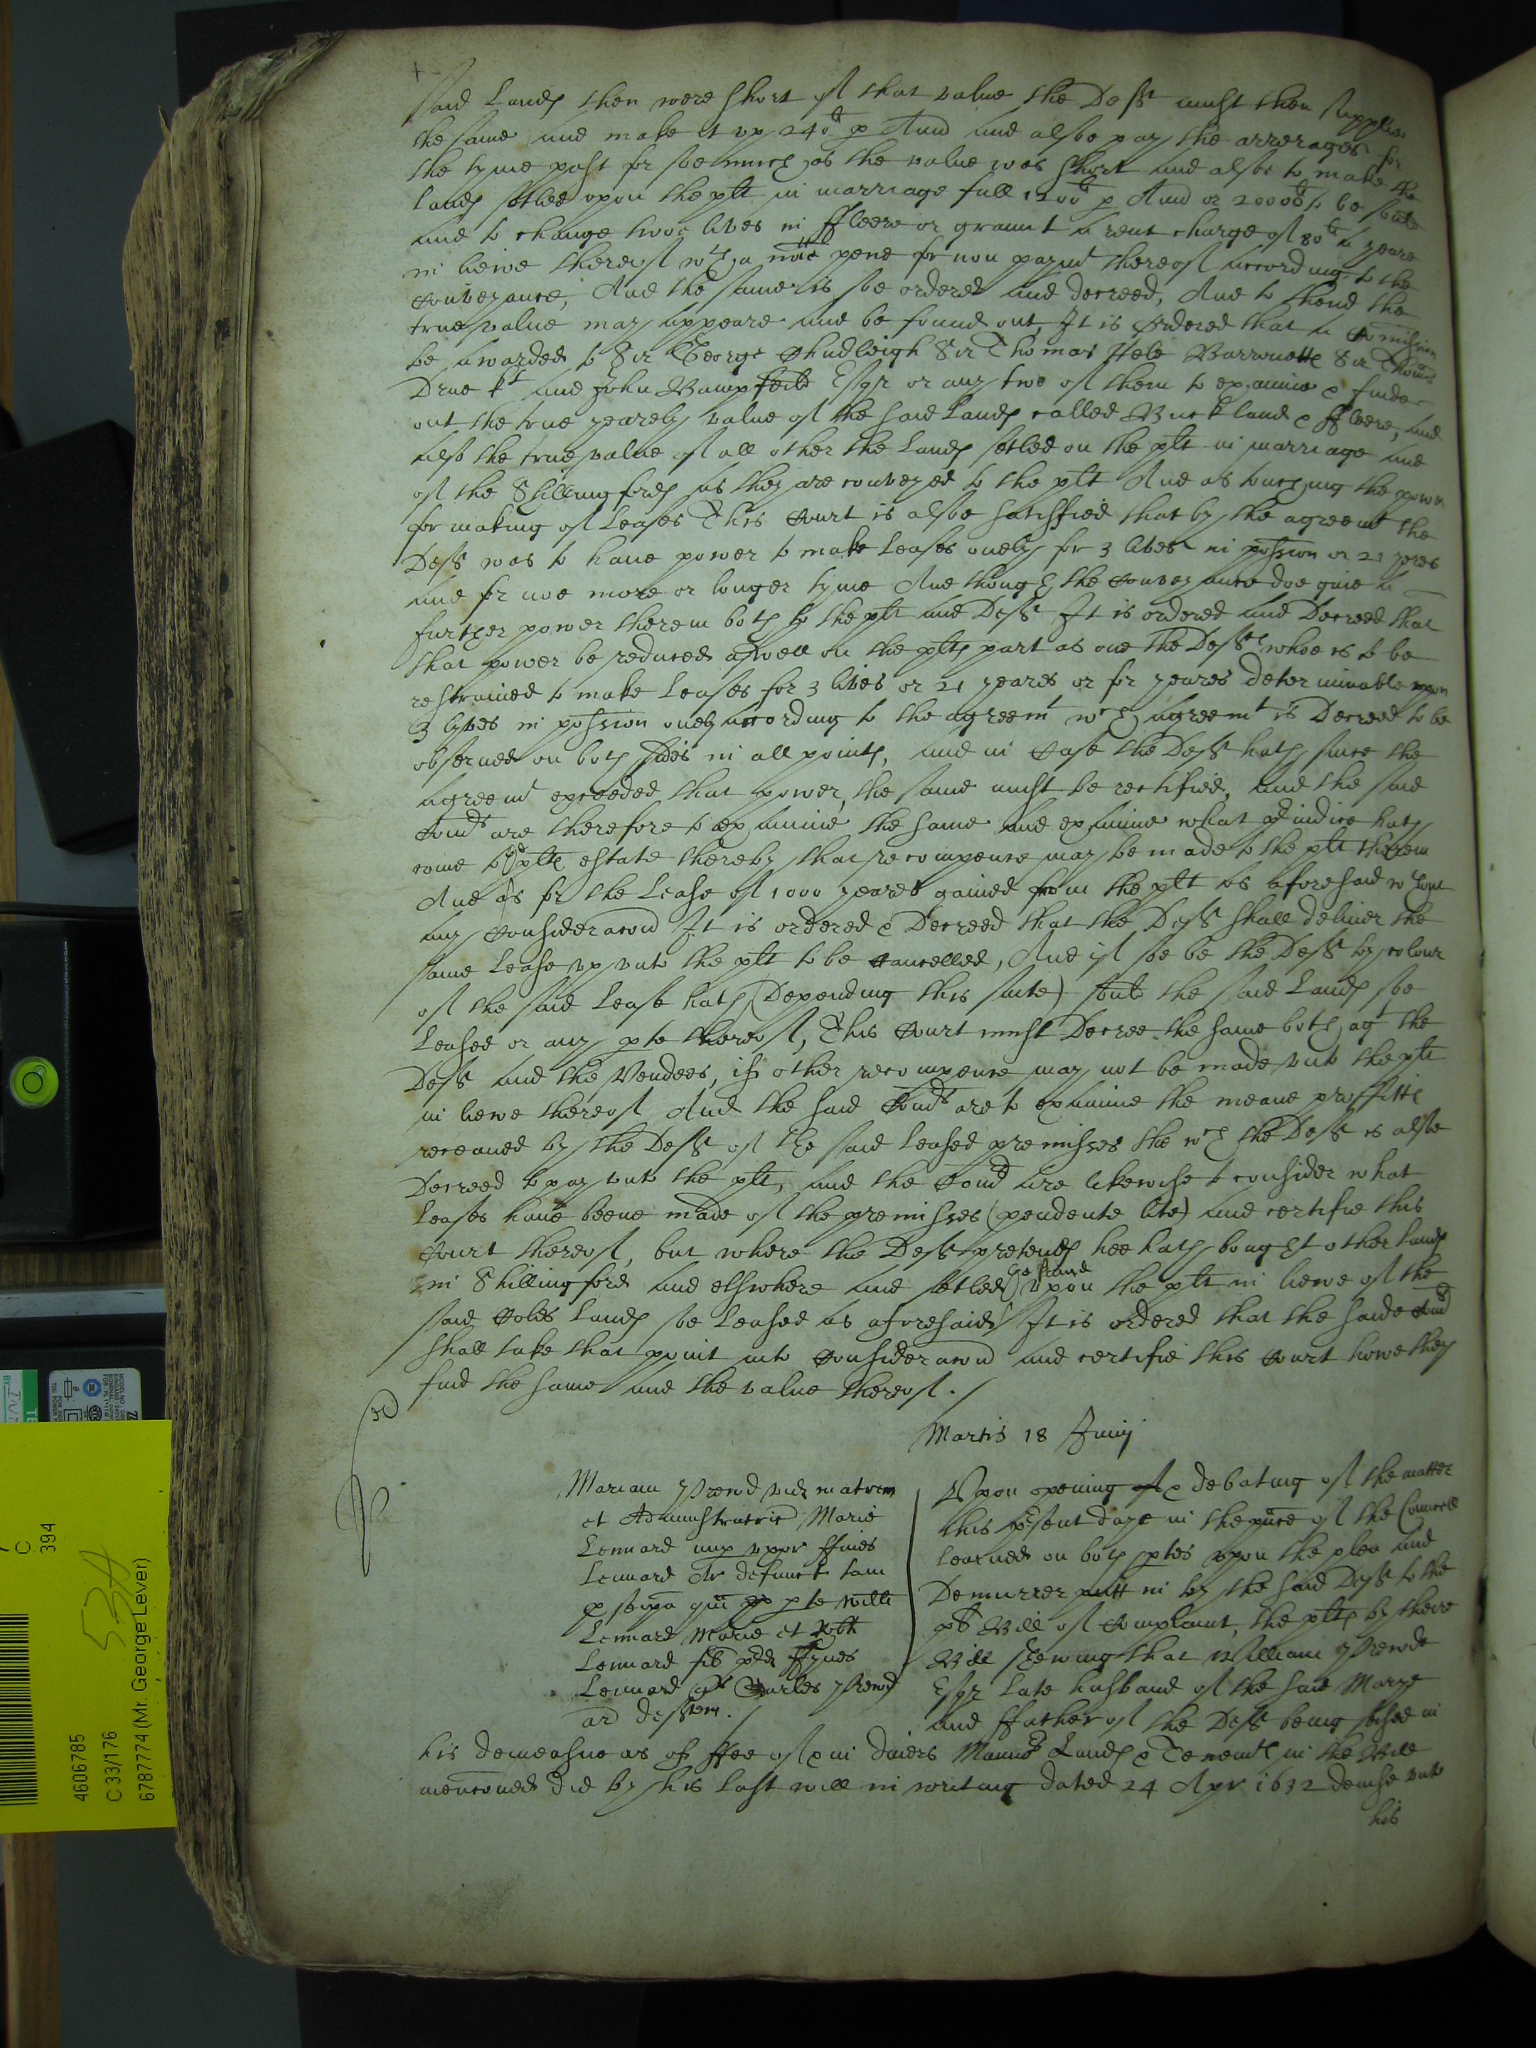 said Lands then were short of that value the Deft must then supplie
the same and make it vp 240li p Ann and alsoe pay the arrerages for
the tyme past for soe much as the value was short and alsoe to make the
Lands setled vpon the plt in marriage full 1200li p Ann or 20000li to be sould
and to change twoe lives in ffleere or graunt a rent charge of 80li a yeare
in liewe thereof wth a pene for non paymt thereof according to the
Conveyance, And the same is soe ordered and decreed, And to thend the
true value may appeare and be found out, It is Ordered that a Comission
be awarded to Sir George Chudleigh Sir Thomas Hele Barronetts Sir Thomas
Drue kt and John Bampfeild Esqr or any two of them to examine & finde
out the true yearely value of the said Lands called Buckland & ffleere, and
also the true value of all other the Lands setled on the plt in marriage and
of the Shillingfords as they are conveyed to the plt And as touching the power
for making of Leases This Court is alsoe satisfied that by the agreemt the
Deft was to haue power to make Leases onely for 3 lives in possion or 21 yeres
and for noe more or longer tyme And though the Conveyance doe giue a
further power therein both to the plt and Deft It is ordered and Decreed that
that power be reduced aswell on the plts part as one the Defts whoe is to be
restrained to make Leases for 3 lives or 21 yeares or for yeares determinable vpon
3 lives in possion onely according to the agreemt wch agreemt is Decreed to be
observed on both sides in all points, and in Case the Deft hath since the
agreemt exceeded that power, the same must be rectified, and the said
Comrs are therefore to examine the same and examine what preiudice hath
come to ye plts estate thereby that recompence may be made to the plt therein
And as for the Lease of 1000 yeares gained from the plt as aforesaid wthout
any Consideracon It is ordered & Decreed that the Deft shall deliuer the
same Lease vp vnto the plt to be Cancelled, And if soe be the Deft by colour
of the said Lease hath (Depending this suite) sould the said Lands soe
Leased or any pte thereof, This Court must Decree the same both agt the
Deft and the Vendees, if other recompence may not be made vnto the plt
in liewe thereof And the said Comrs are to examine the meane proffitts
receaued by the Deft of the said Leased premisses the wch the Deft is alsoe
Decreed to pay vnto the plt, and the Comrs are likewise to consider what
Leases haue beene made of the premisses (pendente lite) and certifie this
Court thereof, but where the Deft pretends hee hath bought other Lands
in Shillingford and elswhere and setled the same vpon the plt in liewe of the
said Lands soe Leased as aforesaid It is ordered that the saide Comrs
shall take that point into Consideracon and certifie this Court howe they
find the same and the value thereof ./
Martis 18 Junij
Mariam Prewd vid matrem
et Administratric Marie
Lennard nup vxor ffines
Lennard Ar defunct tam
p seipa qm p pte Willi
Lennard Marie et
Lennard fil pred ffynes
Lennard qr Charles Prewd
ar deften ./
Vpon opening & debating of the matter
this psent daye in the pnce of the Councell
learned on both ptes vpon the plea and
Demurrer putt in by the said Deft to the
plts Bill of Complaint, the plts by theire
Bill shewing that William Prewde
Esqr late husband of the said Marye
and ffather of the Deft being seised in
his demeasne as of ffee of & in diuers Mannors Lands & Tenemts in the Bill
mencioned did by his last will in writing dated 24 Apr 1632 demise vnto
his
4606785
C 33/176
6787774 (Mr. George Lever)
C
394
53A